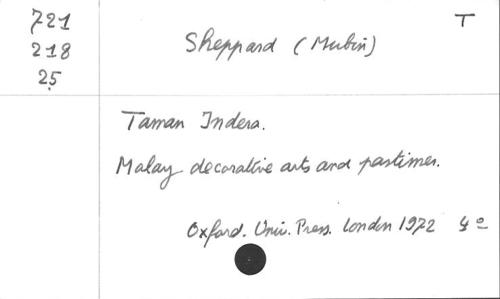 721
218
25
T
Sheppard (Mubin)
Taman Indera.
Malay decorative arts and pastimes.
Oxford. Univ. Press. London 1972 4º